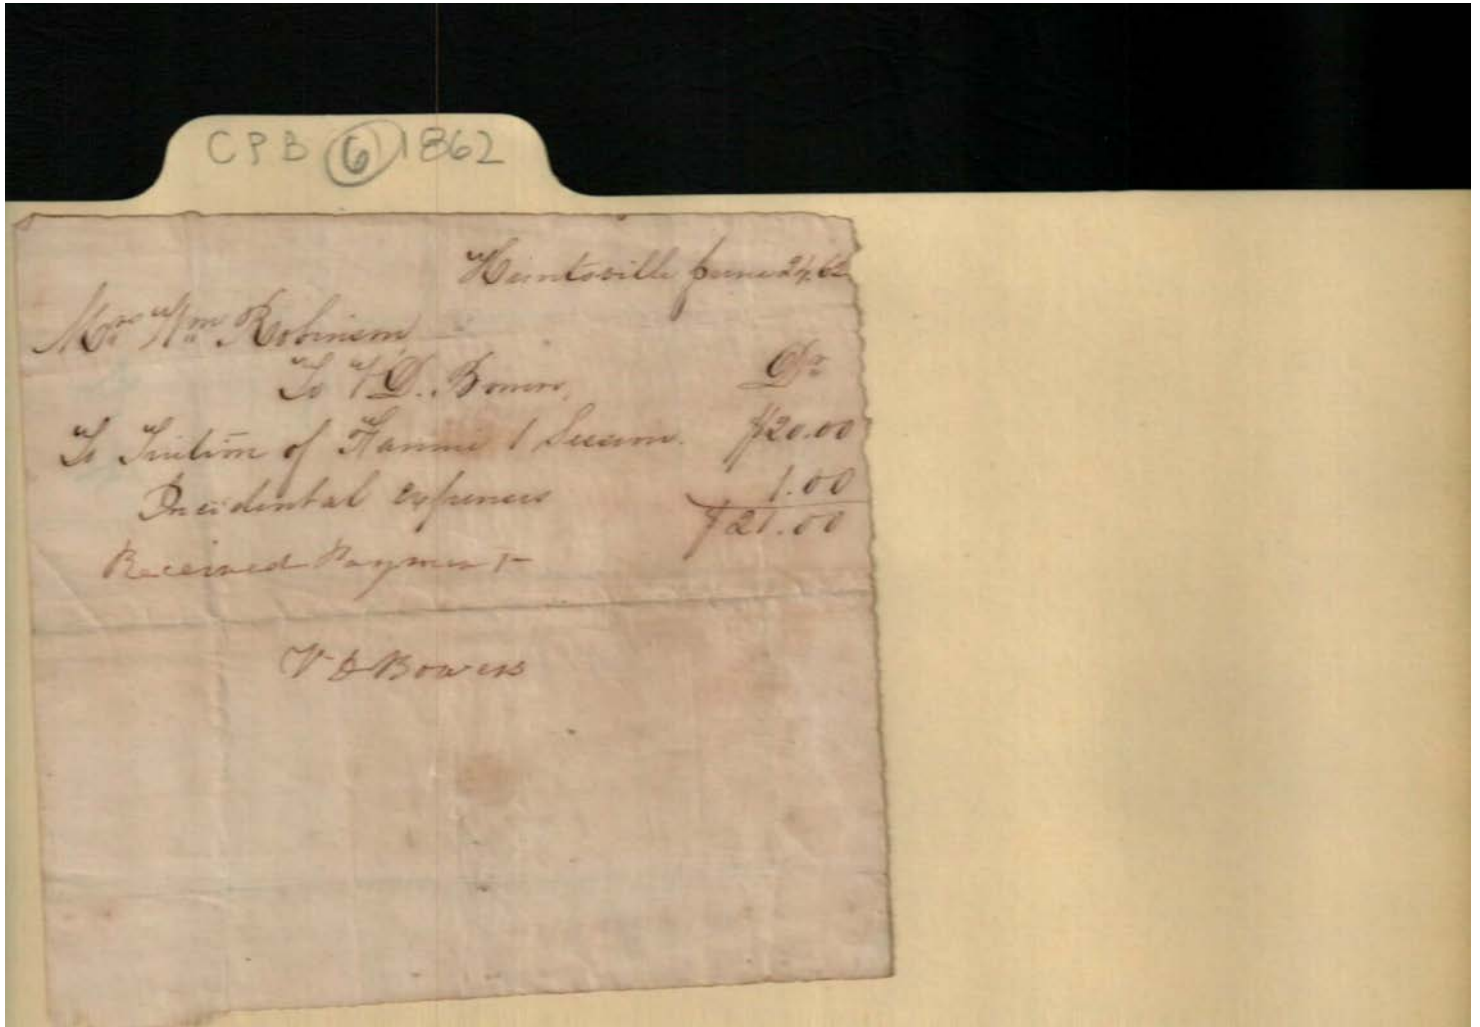 CPB 6 1862
Huntsville June 24, 62
Mrs Wm Robinson
To V D. Bowers, Dr
To Tuition of Fannie 1 Session. $20.00
Incidental expenses 1.00
$21.00
Received Payment
V D Bowers